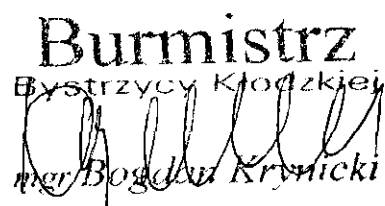 Burmistrz
Bystrzycy Kłodzkiej
mgr Bogdan Krynicki